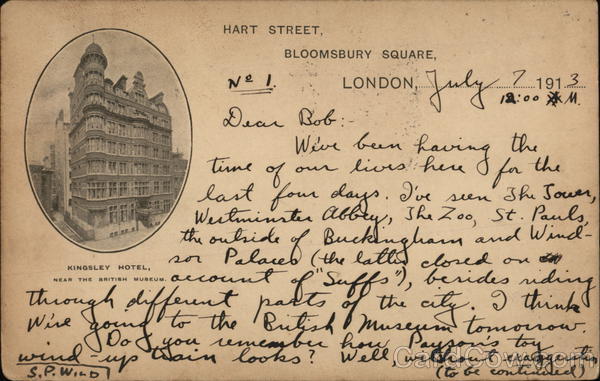 HART STREET,
BLOOMSBURY SQUARE,
No 1.
LONDON, July 7 1913
12:00 M.
Dear Bob:-
We've been having the
time of our lives here for the
last four days. I've seen The Tower,
Westminster Abbey, The Zoo, St. Pauls,
the outside of Buckingham and Wind-
sor Palaces (the latter closed on
account of "Suffs"), besides riding
through different parts of the city. I think
We're going to the British Museum tomorrow.
Do you remember how Payson's toy
wind-up train looks? Well without exaggerati
(to be continued)
S.P. WILD
KINGSLEY HOTEL,
NEAR THE BRITISH MUSEUM.
CardCow.com